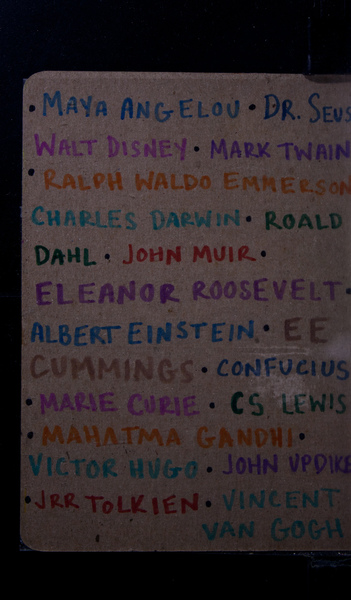 • MAYA ANGELOU • DR. SEUS
WALT DISNEY • MARK TWAIN
• RALPH WALDO EMMERSON
CHARLES DARWIN • ROALD
DAHL • JOHN MUIR •
ELEANOR ROOSEVELT •
ALBERT EINSTEIN • EE
CUMMINGS • CONFUCIUS
• MARIE CURIE • CS LEWIS
• MAHATMA GANDHI •
VICTOR HUGO • JOHN UPDIKE
• JRR TOLKIEN • VINCENT
VAN GOGH